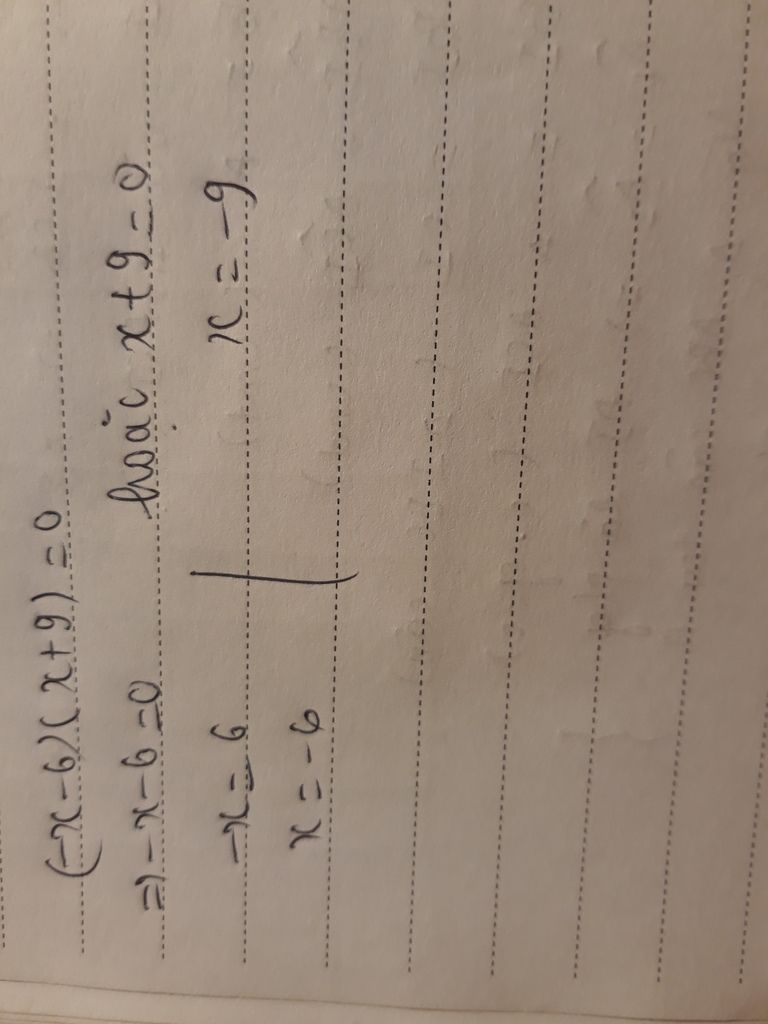 (-x-6)(x+9)=0
=> -x-6=0 hoặc x+9=0
-x=6 | x=-9
x=-6